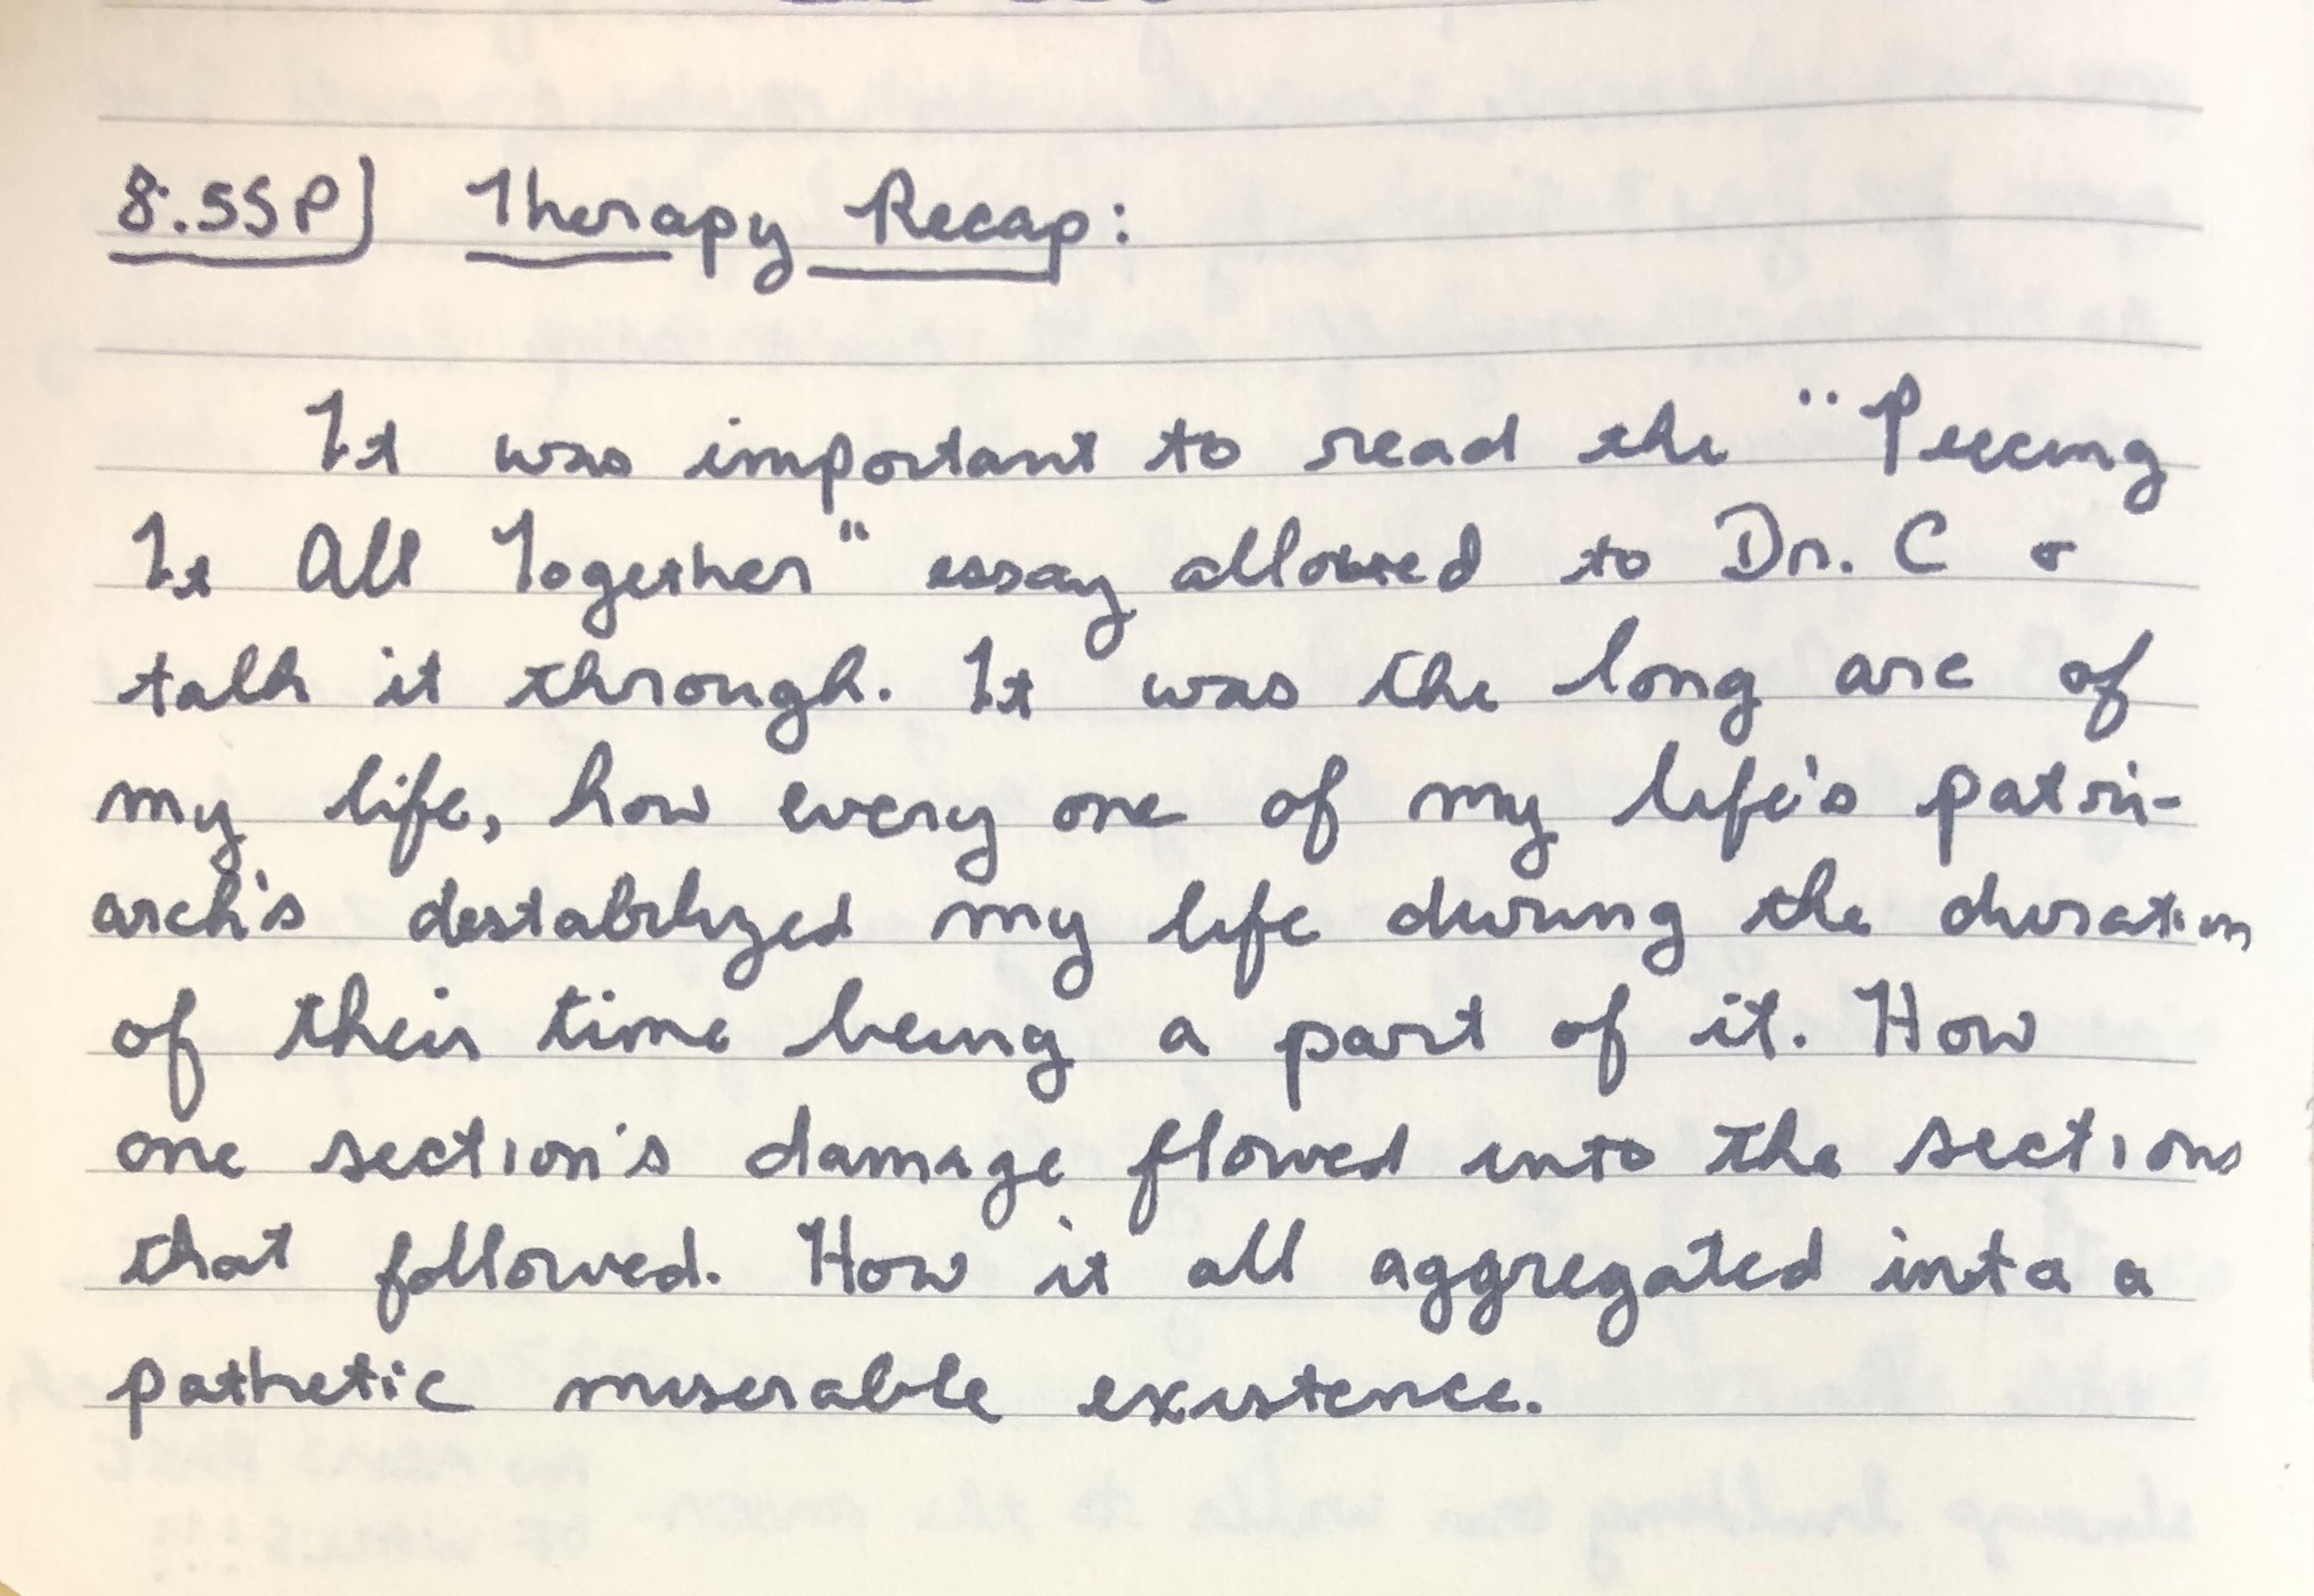 8:55P) Therapy Recap:
It was important to read the "Piecing
It All Together" essay allowed to Dr. C &
talk it through. It was the long arc of
my life, how every one of my life's patri-
arch's destabilized my life during the duration
of their time being a part of it. How
one section's damage flowed into the sections
that followed. How it all aggregated into a
pathetic miserable existence.